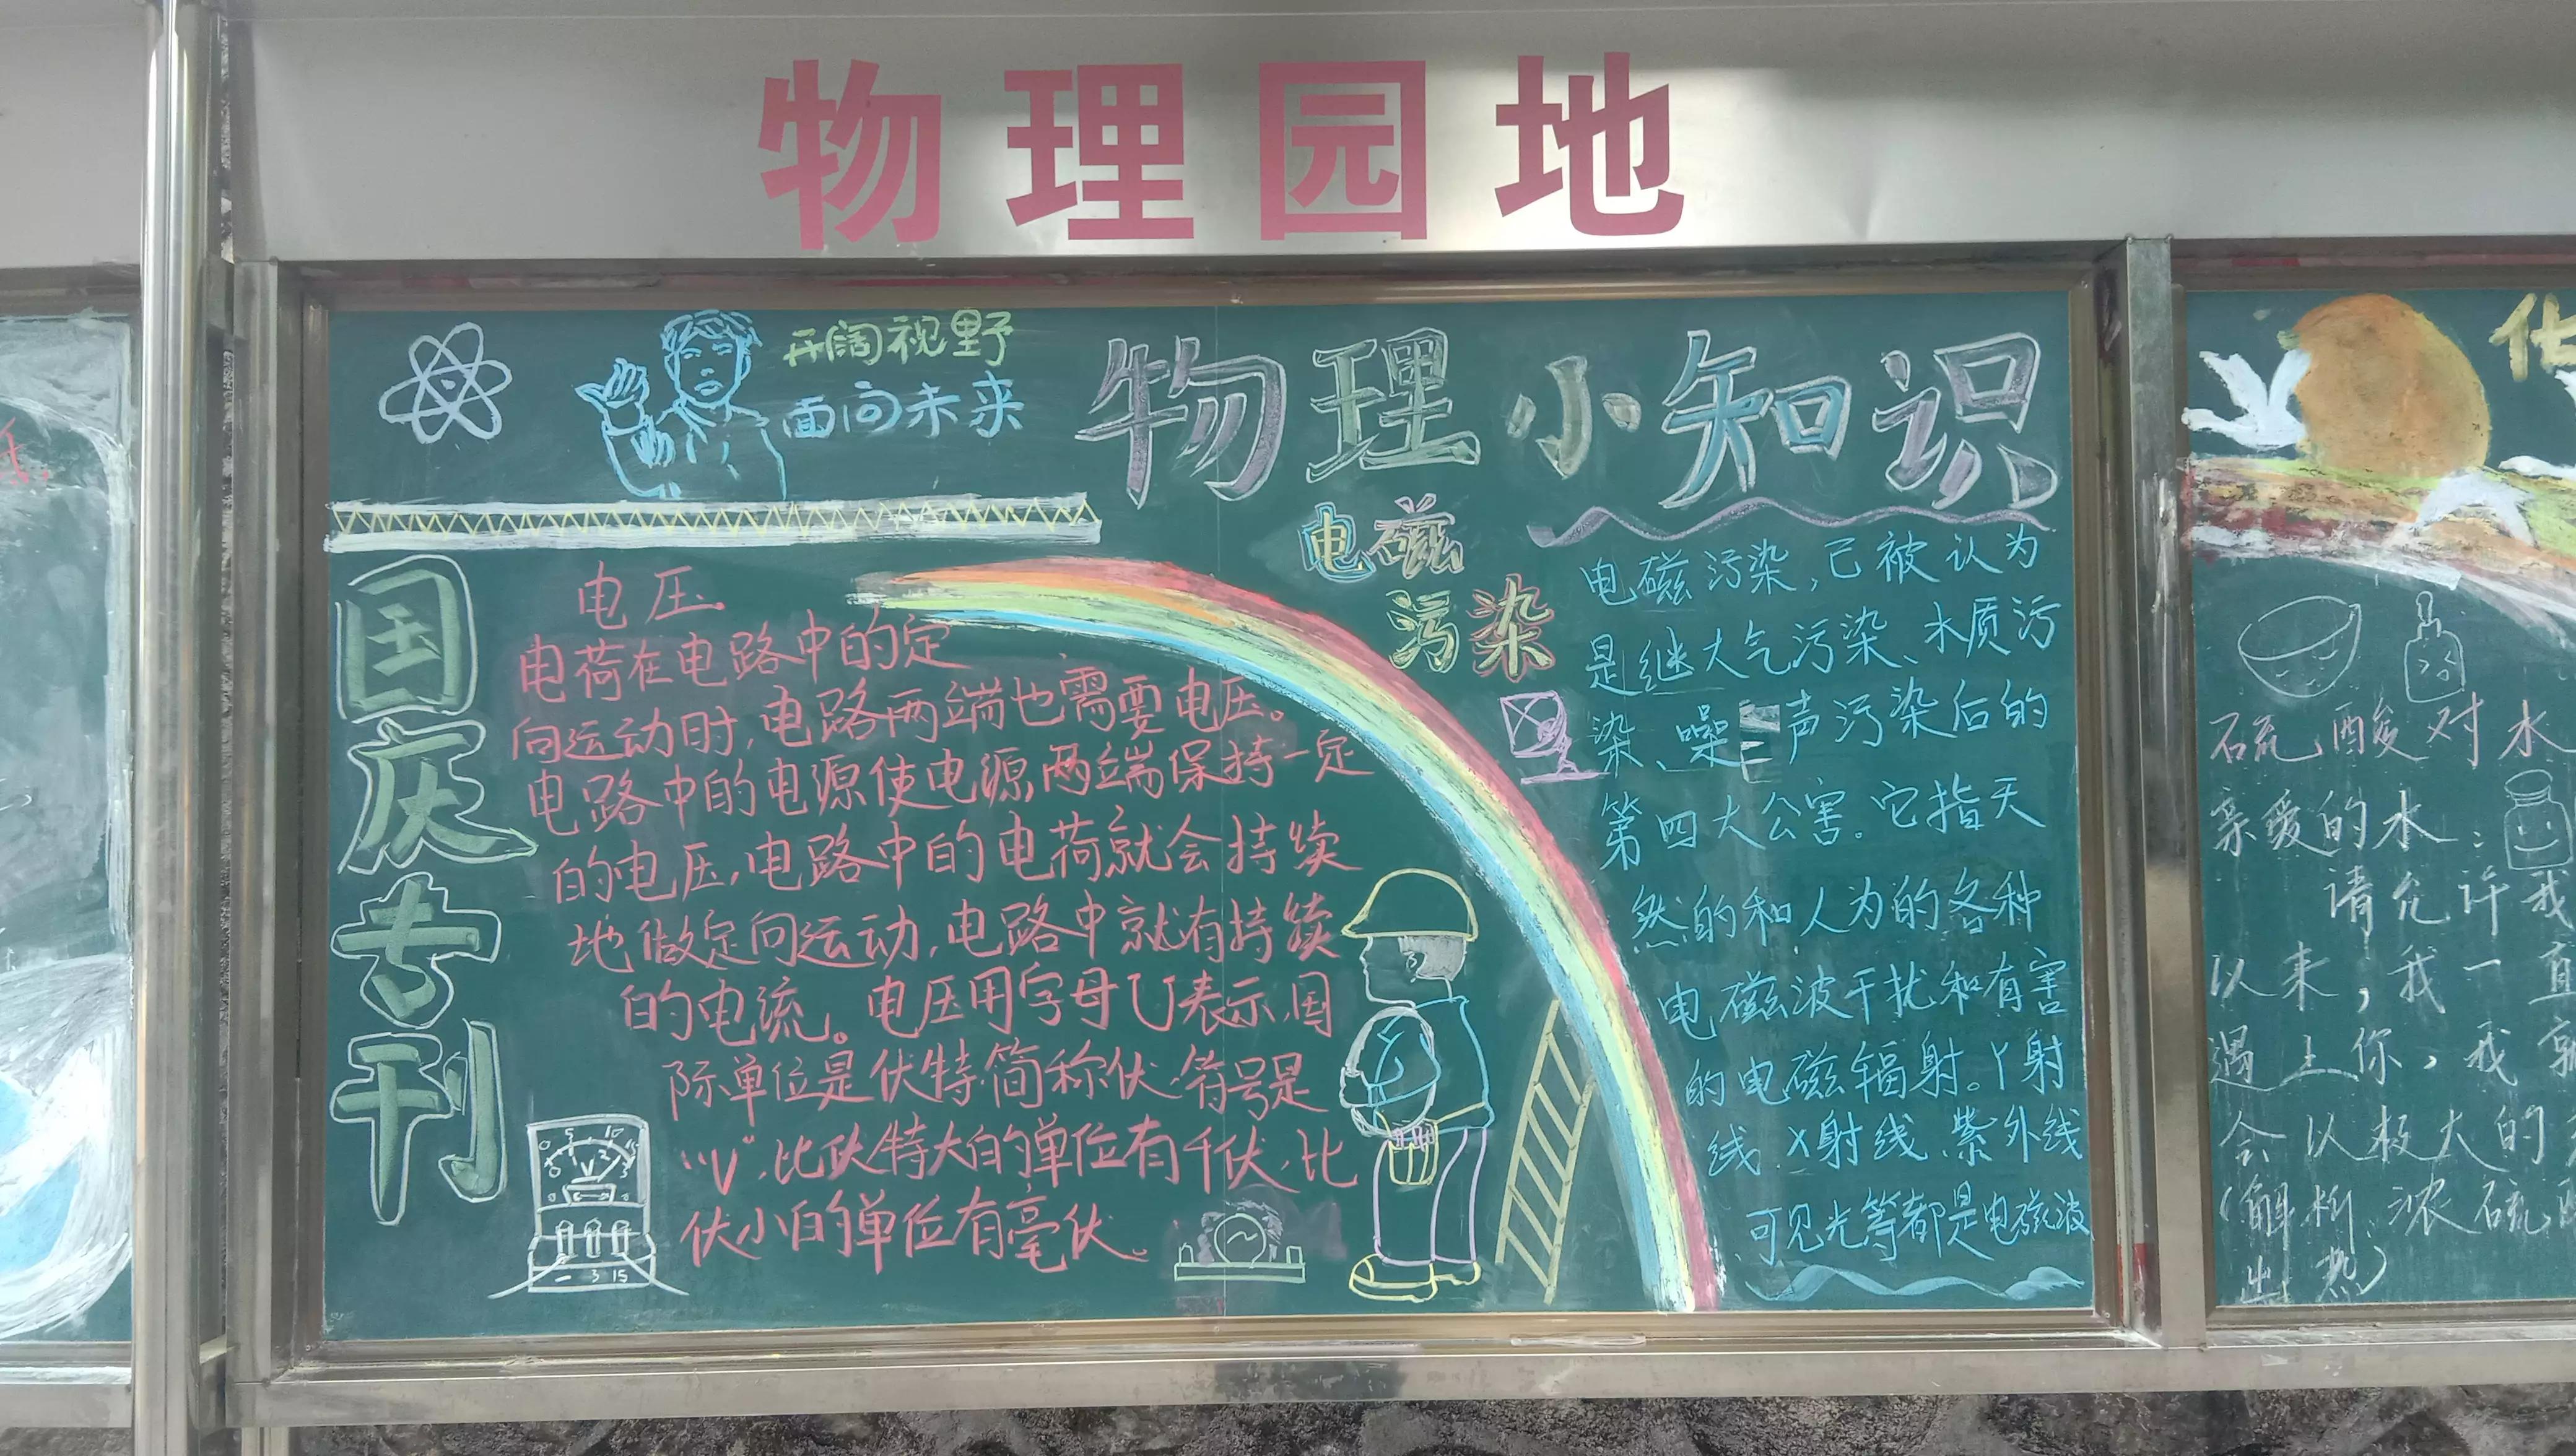 物理园地
开阔视野
面向未来
物理小知识
国庆专刊
电压
电荷在电路中的定
向运动时,电路两端也需要电压。
电路中的电源使电源两端保持一定
的电压,电路中的电荷就会持续
地做定向运动,电路中就有持续
的电流。电压用字母U表示,国
际单位是伏特,简称伏,符号是
“V”,比伏特大的单位有千伏,比
伏小的单位有毫伏。
- 3 15
电磁
污染
电磁污染,已被认为
是继大气污染、水质污
染、噪声污染后的
第四大公害。它指天
然的和人为的各种
电磁波干扰和有害
的电磁辐射。丫射
线、X射线、紫外线
可见光等都是电磁波
硫酸对水
亲爱的水:
请允许我
以来,我一直
遇上你,我就
会以极大的
(解析:浓硫
出热)